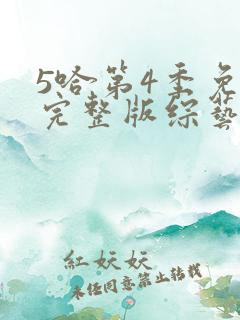 5哈第4季免
完整版综藝
紅妖妖
未经同意禁止转载